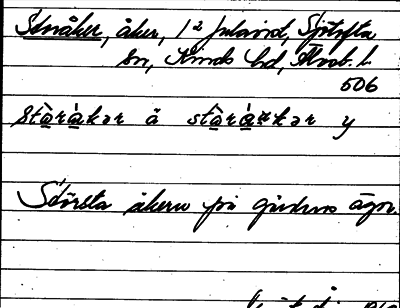 Storåker, åker, 1 2 Sjötofta
sn, Kinds hd, Älvsb. l.
506
stàrákər ä stàràkər y
Största åkern på gårdens ägor.